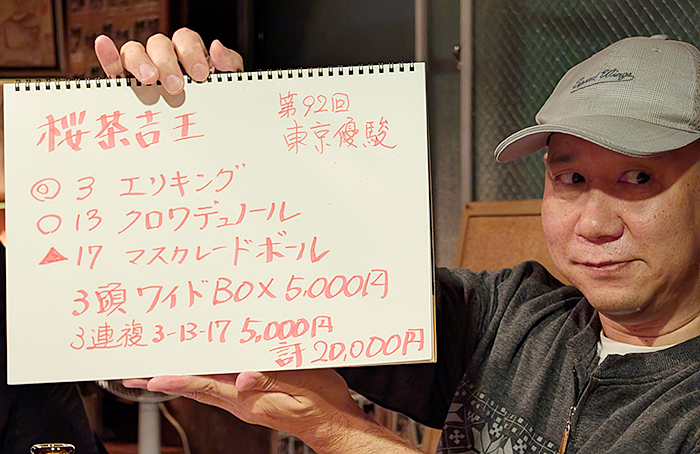 桜茶吉王
第92回
東京優駿
◎3 エリキング
○13 クロワデュノール
▲17 マスカレードボール
3頭ワイドBOX 5,000円
3連複 3-13-17 5,000円
計20,000円